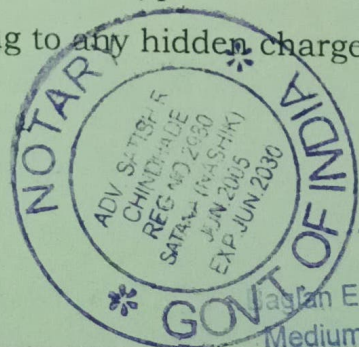 g to any hidden charge
NOTARY
GOVT OF INDIA
ADV SATISH R
REG NO 2950
SATANA (NASHIK)
JUN.2005
EXP.JUN.2030
Medium